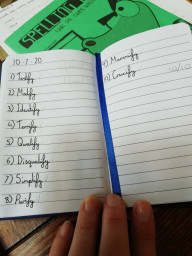 SPELLING
10-7-20
1)
2)
3) Identify
4) Terrify
5) Qualify
6) Disqualify
7) Simplify
8) Purify
9) Mummify
10) Crucify
10/10